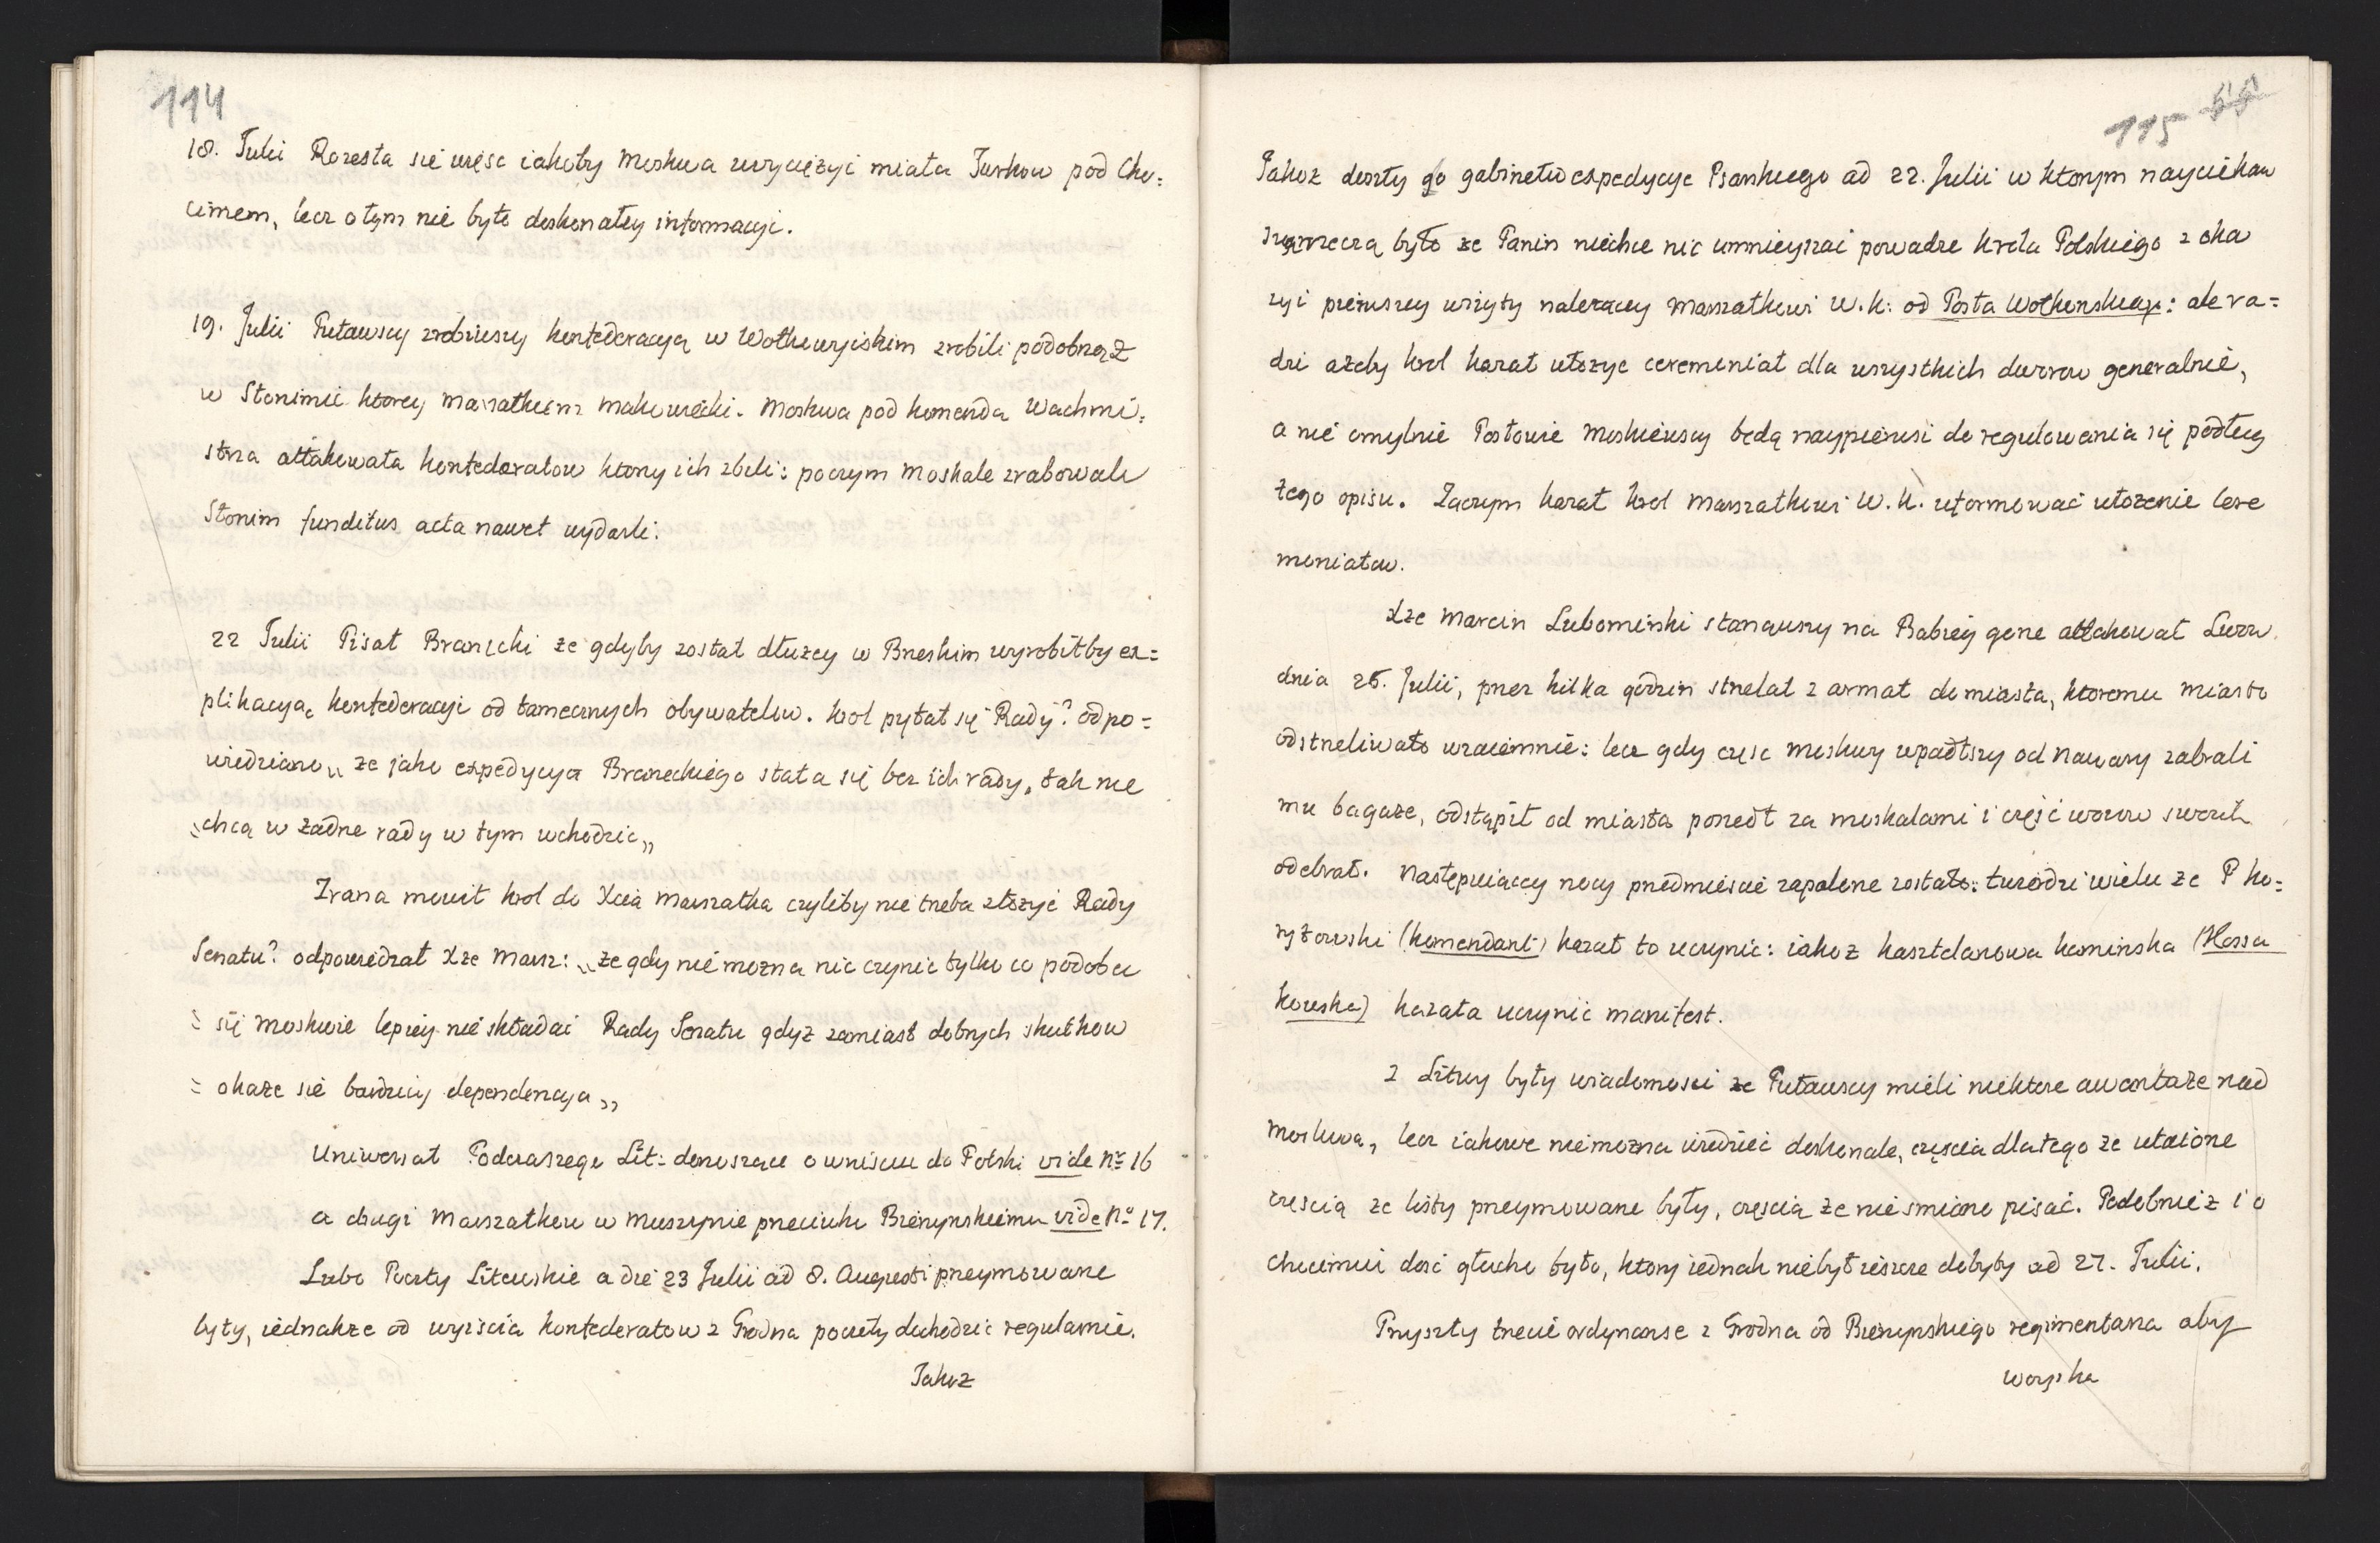 114
18. Julii Rozesła się wieść iakoby Moskwa zwyciężyć miała Turkow pod Cho:
cimem, lecz o tym nie było doskonałey informacyi.
19. Julii Puławscy zrobiwszy konfederacyą w Wołkowyiskim zrobili podobnąż
w Słonimie ktorey marszałkiem Makowiecki. Moskwa pod komenda Wachmi:
strza attakowała konfederatow ktorzy ich zbili: poczym Moskale zrabowali
Słonim funditus acta nawet wydarli:
22 Julii Pisał Branicki że gdyby został dłużey w Brzeskim wyrobiłby ex=
plikacyą konfederacyi od tamecznych obywatelow. Krol pytał się Rady? odpo=
wiedziano „ że jako expedycya Braneckiego stała się bez ich rady, tak nie
„chcą w żadne rady w tym wchodzic„
Zrana mowił krol do Xcia Marszałka czyliby nie trzeba złożyć Rady
Senatu? odpowiedział Xze Marsz: „że gdy nie można nic czynic tylko co podoba
= się Moskwie lepiey nie składać Rady Senatu gdyż zamiast dobrych skutkow
= okaże się bardziey dependencya„
Uniwersał Podczaszego Lit: donoszące o wniściu do Polski vide No 16
a drugi Marszałkow w Muszynie przeciwko Bierzynskiemu vide No 17.
Lubo Poczty Litewskie a die 23 Julii ad 8. Augusti przeymowane
były, iednakże od wyiścia konfederatow z Grodna poczęły dochodzic regularnie.
Jakoż
115 55
Jakoż doszły do gabinetu expedycye Psarskiego ad 22. Julii w ktorym nayciekaw
szą rzeczą było że Panin niechce nic umnieyszać powadze krola Polskiego z oka
zyi pierwszey wizyty należacey Marszałkowi W. K: od Posła Wołkonskiego: ale ra=
dzi ażeby krol kazał ułożyc ceremoniał dla wszystkich dworow generalnie,
a nie omylnie Posłowie Moskiewscy będą naypierwsi do regulowania się podług
tego opisu. Zaczym kazał krol Marszałkowi W. K. uformować ułożenie Cere
moniałow.
Xze Marcin Lubomirski stanąwszy na Babiey gorze attakował Lwow.
dnia 25. Julii, przez kilka godzin strzelał z armat do miasta, ktoremu miasto
odstrzeliwało wzaiemnie: lecz gdy częsc Moskwy wpadłszy od Nawary zabrali
mu bagaże, odstąpił od miasta poszedł za Moskalami i część wozow swoich
odebrał. Następuiącey nocy przedmieście zapalone zostało: twierdzi wielu że P Ko:
rytowski (komendant) kazał to uczynic: iakoż kasztelanowa Kaminska (Kossa
kowska) kazała uczynić manifest.
z Litwy były wiadomosci że Puławscy mieli niektore awantaże nad
Moskwą, lecz iakowe nie można wiedzieć doskonale, częscia dlatego że utaione
częscią że listy przeymowane były, częscią że nie smiano pisać. Podobnież i o
Chocimie dosć głucho było, ktory iednak nie był ieszcze dobyty ad 27. Julii.
Przyszły trzecie ordynanse z Grodna od Bierzynskiego regimentarza aby
woyska